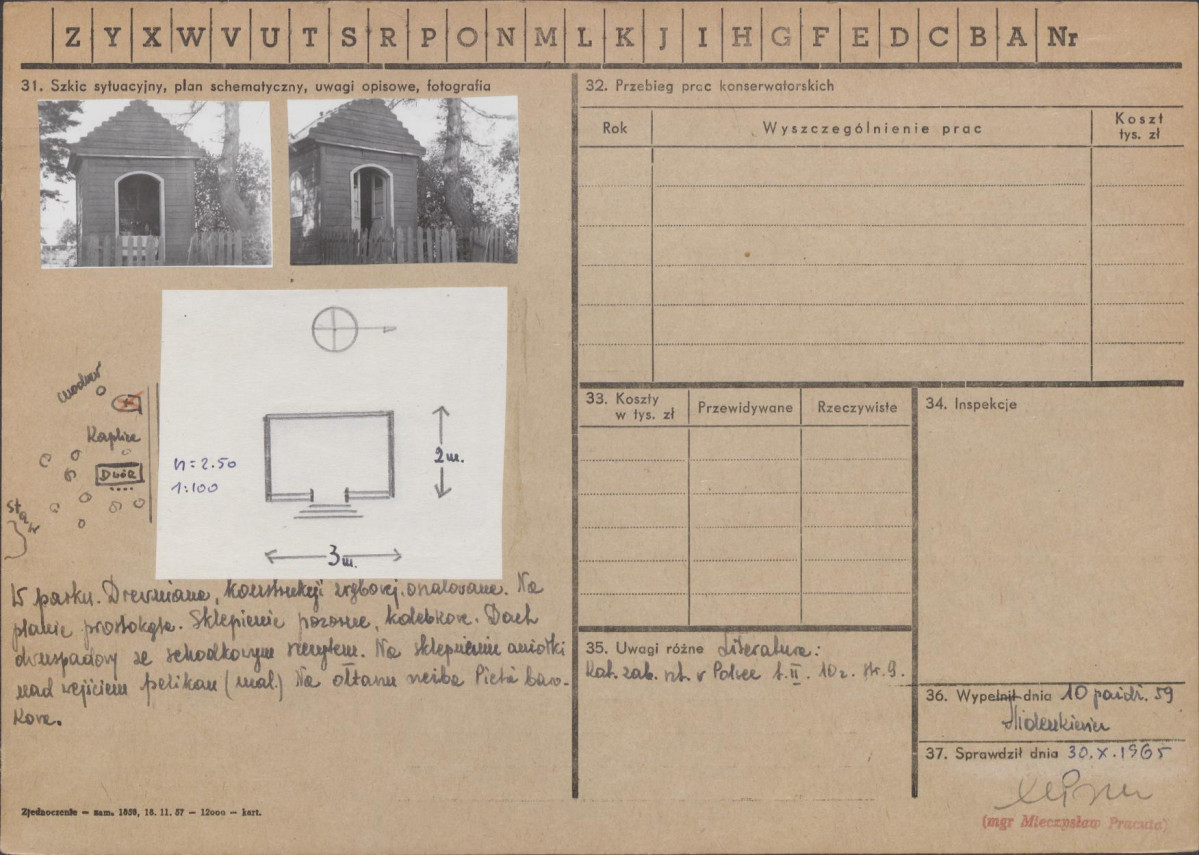 Z Y X W V U T S R P O N M L K J I H G F E D C B A Nr
31. Szkic sytuacyjny, plan schematyczny, uwagi opisowe, fotografia
Kaplica
Dwór
staw
h=2.50
1:100
2 m.
3 m.
W parku. Drewniana, konstrukcji zrębowej, oszalowana. Na
planie prostokąta. Sklepienie pozorne, kolebkowe. Dach
dwuspadowy ze schodkowym szczytem. Na sklepieniu aniołki
nad wejściem pelikan (mal.) Na ołtarzu rzeźba Pietà baro-
kowa.
Zjednoczenie — zam. 1858, 16. 11. 57 — 12000 — kart.
32. Przebieg prac konserwatorskich
Rok
Wyszczególnienie prac
Koszt
tys. zł
33. Koszty
w tys. zł
Przewidywane
Rzeczywiste
34. Inspekcje
35. Uwagi różne Literatura:
Kat. zab. szt. w Polsce t. II. 10z. str. 9.
36. Wypełnił dnia 10 paźdz. 59
37. Sprawdził dnia 30.X.1965
(mgr Mieczysław Pracuta)